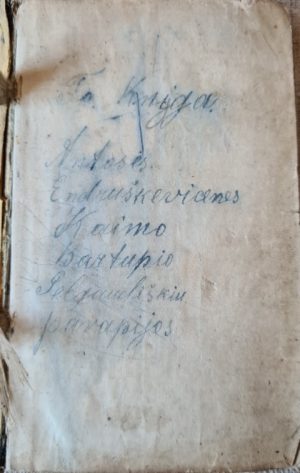 Ta Knįga.
Antosės
Endruškevicenes
Kaimo
Bartupio
Gelgaudiškiu
parapijos